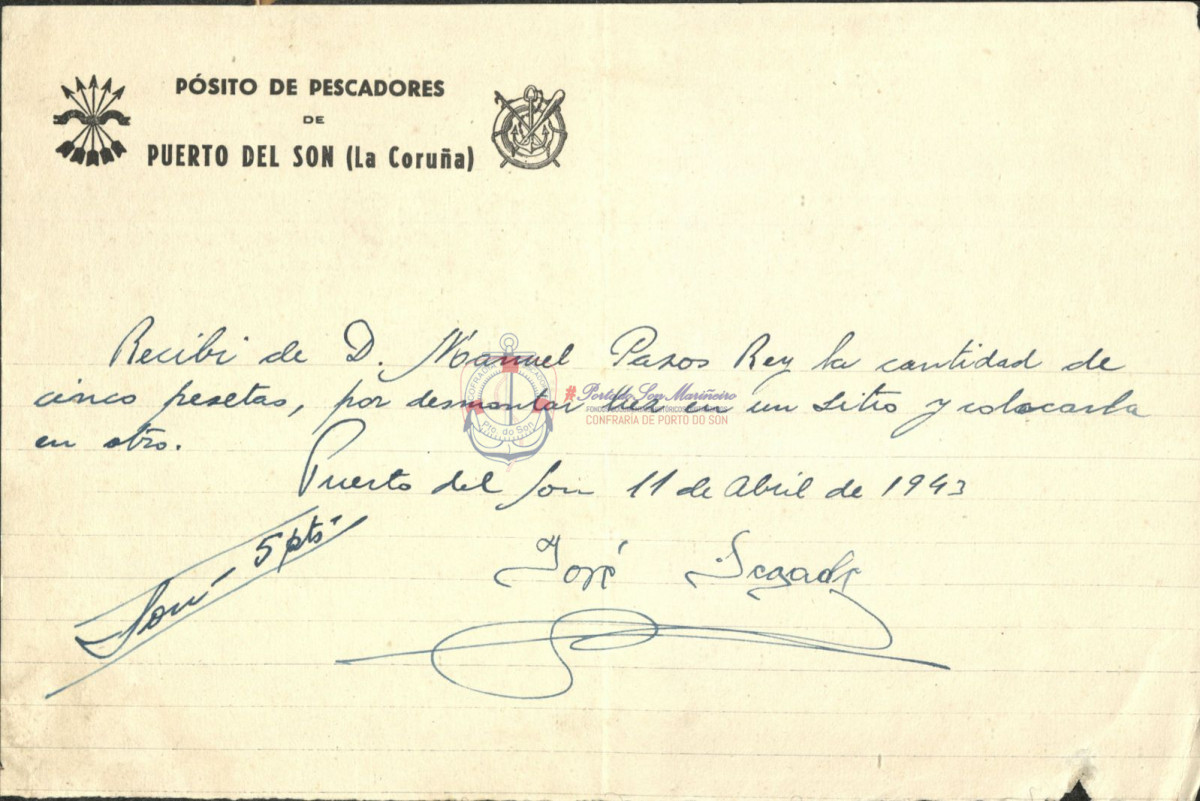 PÓSITO DE PESCADORES
DE
PUERTO DEL SON (La Coruña)
Recibi de D. Manuel Pazos Rey la cantidad de
cinco pesetas, por desmontar un sitio y colocarla
en otro.
Puerto del Son 11 de Abril de 1943
Son 5 pts
José Segade
COFRADÍA
Pto. do Son
#Porto do Son Mariñeiro
CONFRARÍA DE PORTO DO SON